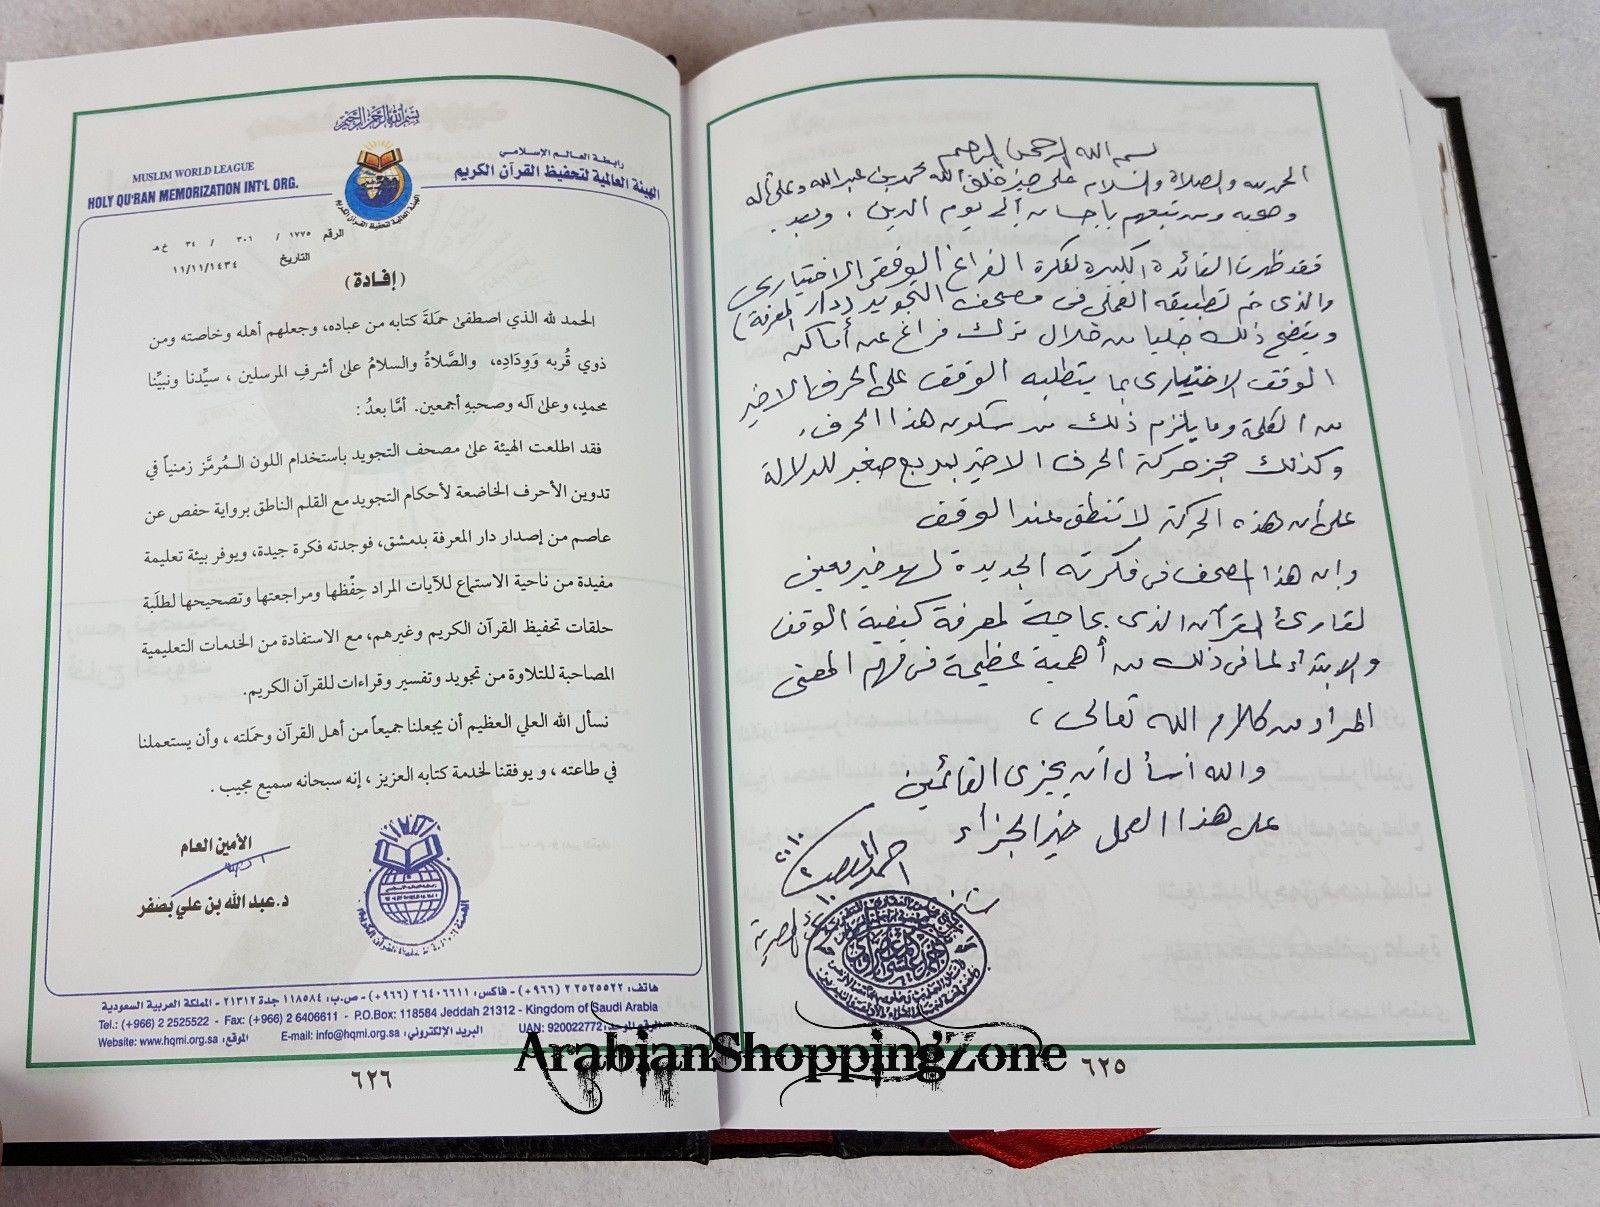 بسم الله الرحمن الرحيم
الحمد لله والصلاة والسلام على خير خلق الله محمد بن عبد الله وعلى آله
وصحبه ومن تبعهم بإحسان إلى يوم الدين . وبعد .
فقد ظهرت الفائدة الكبيرة لفكرة الفراغ الوقفي الاختياري
والذي تم تطبيقه العملي في مصحف التجويد (دار المعرفة)
ويتضح ذلك جليا من خلال ترك فراغ عند أماكن
الوقف الاختياري بما يتطلبه الوقف على الحرف الأخير
من الكلمة وما يلزم ذلك من سكون هذا الحرف ،
وكذلك حجز حركة الحرف الأخير بمربع صغير للدلالة
على أن هذه الحركة لا تنطق عند الوقف
وإن هذا المصحف في فكرته الجديدة لهو خير معين
لقارئ القرآن الذي بحاجة لمعرفة كيفية الوقف
والابتداء لما في ذلك من أهمية عظيمة في فهم المعنى
المراد من كلام الله تعالى ،
والله أسأل أن يجزي القائمين
على هذا العمل خير الجزاء
٦٢٥
بسم الله الرحمن الرحيم
رابطة العالم الإسلامي
الهيئة العالمية لتحفيظ القرآن الكريم
MUSLIM WORLD LEAGUE
HOLY QU'RAN MEMORIZATION INT'L ORG.
الهيئة العالمية لتحفيظ القرآن الكريم
الرقم ١٧٧٥ / ٣٠١ / ٣٤ خ هـ
التاريخ ١١/١١/١٤٣٤
(إفادة)
الحمد لله الذي اصطفىٰ حمَلَةَ كتابه من عباده، وجعلهم أهله وخاصته ومن
ذوي قُربه وَوِدَادِه، والصَّلاةُ والسلامُ علىٰ أشرفِ المرسلين ، سيِّدنا ونبيِّنا
محمدٍ، وعلىٰ آله وصحبهِ أجمعين. أمَّا بعدُ :
فقد اطلعت الهيئة علىٰ مصحف التجويد باستخدام اللون المُرمَّز زمنياً في
تدوين الأحرف الخاضعة لأحكام التجويد مع القلم الناطق برواية حفص عن
عاصم من إصدار دار المعرفة بدمشق، فوجدته فكرة جيدة، ويوفر بيئة تعليمة
مفيدة من ناحية الاستماع للآيات المراد حِفْظها ومراجعتها وتصحيحها لطلَبة
حلقات تحفيظ القرآن الكريم وغيرهم، مع الاستفادة من الخدمات التعليمية
المصاحبة للتلاوة من تجويد وتفسير وقراءات للقرآن الكريم.
نسأل الله العلي العظيم أن يجعلنا جميعاً من أهل القرآن وحمَلته ، وأن يستعملنا
في طاعته ، و يوفقنا لخدمة كتابه العزيز ، إنه سبحانه سميع مجيب .
الأمين العام
د. عبد الله بن علي بصفر
هاتف: ٢٥٢٥٥٢٢ ٢ (٩٦٦+) - فاكس: ٦٤٠٦٦١١ ٢ (٩٦٦+) - ص.ب: ١١٨٥٨٤ جدة ٢١٣١٢ - المملكة العربية السعودية
Tel.: (+966) 2 2525522 - Fax: (+966) 2 6406611 - P.O.Box: 118584 Jeddah 21312 - Kingdom of Saudi Arabia
Website: www.hqmi.org.sa الموقع: E-mail: info@hqmi.org.sa البريد الإلكتروني: UAN: 920022772 الرقم الموحد:
٦٢٦
ArabianShoppingZone